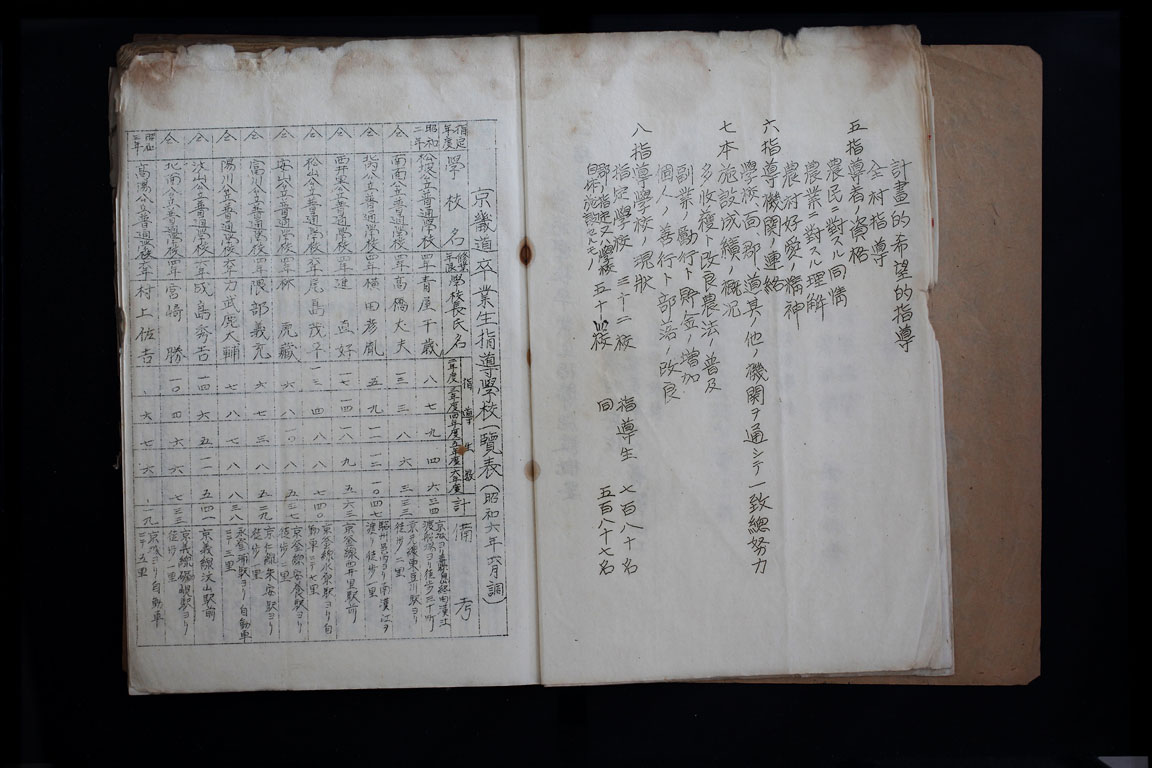 計畫的希望的指導
全村指導
五指導者ノ資格
農民ニ對スル同情
農業ニ對スル理解
農村好愛ノ精神
六指導機関ノ連絡
學校、面、郡、道其ノ他ノ機関ヲ通シテ一致總努力
七本施設成績ノ概況
多收穫ト改良農法ノ普及
副業ノ勵行ト貯金ノ増加
個人ノ善行ト部落ノ改良
八指導學校ノ現狀
指定學校 三十二校 指導生 七百八十名
五十八校 同 五百八十七名
京畿道卒業生指導學校一覽表(昭和六年六月調)
指定年度 學校名 修業年限 學校長氏名 指導生數 二年度 三年度 四年度 五年度 六年度 計 備考
昭和二年 松坡公立普通學校 四年 青屋千歳 八 七 九 四 六 三四
仝 南面公立普通學校 四年 高橋丈夫 一三 三 八 六 三 三三
仝 四年 横田彦胤 五 九 一一 一二 一〇 四七
仝 西井里公立普通學校 四年 進 直好 一七 一四 一八 九 五 六三 京釜線西井里駅前
仝 松山公立普通學校 六年 尾島茂 一三 四 八 八 七 四〇
仝 安 公立普通學校 六年 林 虎藏 六 八 一〇 八 五 三七 京釜線安養駅ヨリ徒歩 二里
仝 富川公立普通學校 四年 隈部義充 六 七 三 八 五 二九 京仁線素砂駅ヨリ徒歩 一里
仝 陽川公立普通學校 六年 力武虎大輔 七 八 七 八 八 三八
仝 汶山公立普通學校 六年 成島秀吉 一四 六 五 一一 五 四一 京義線汶山駅前
仝 北面公立普通學校 四年 宮崎 勝 一〇 四 六 六 七 三三
昭和三年 高陽公立普通學校 六年 村上佐吉 、 六 七 六 、 一九 京城ヨリ自動車ニテ五里